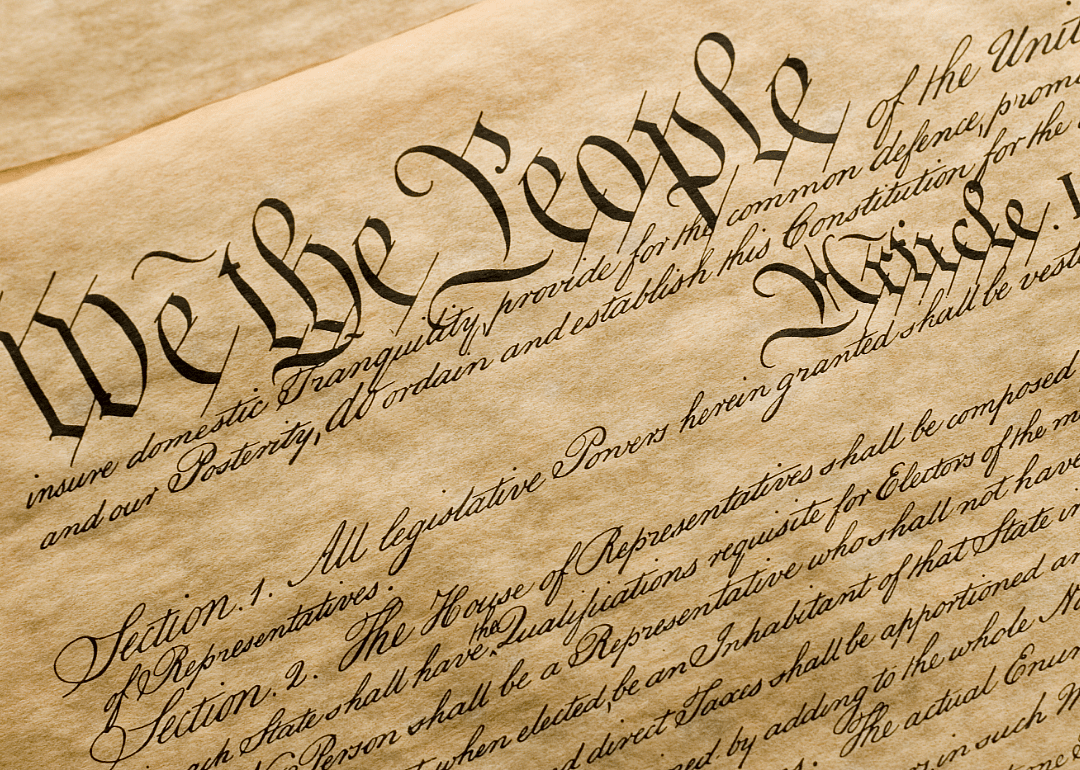 We the People of the Unit
insure domestic Tranquility, provide for the common defence, promo
and our Posterity, do ordain and establish this Constitution for the
Article. I
Section. 1. All legislative Powers herein granted shall be vest
of Representatives.
Section. 2. The House of Representatives shall be composed
the
ach State shall have Qualifications requisite for Electors of the m
No Person shall be a Representative who shall not have
t when elected, be an Inhabitant of that State in
d direct Taxes shall be apportioned an
ned by adding to the whole Nu
s. The actual Enum
in such M